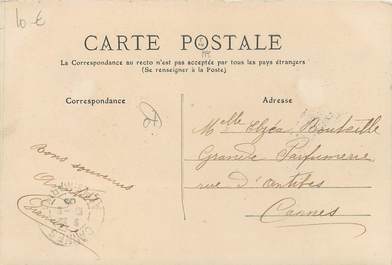 10 €
CARTE POSTALE
La Correspondance au recto n'est pas acceptée par tous les pays étrangers
(Se renseigner à la Poste)
Correspondance
Adresse
Bons souvenirs
Melle
Grande Parfumerie
rue d'Antibes
Cannes
CANNES